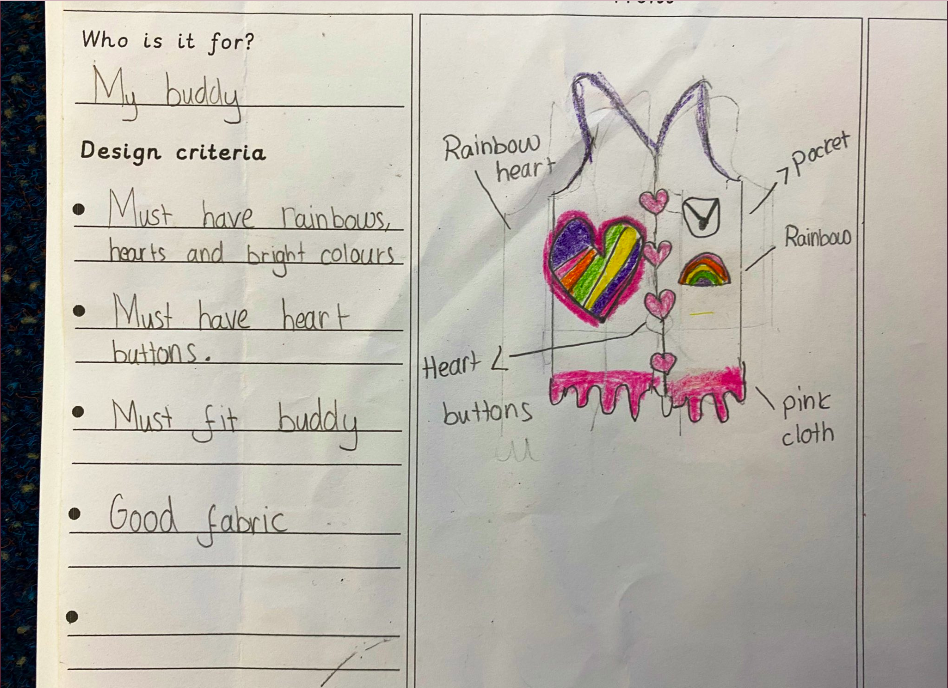 Who is it for?
My buddy
Design criteria
Must have rainbows,
hearts and bright colours
Must have heart
buttons.
Must fit buddy
Good fabric
Rainbow
heart
Pocket
Rainbow
Heart
buttons
pink
cloth